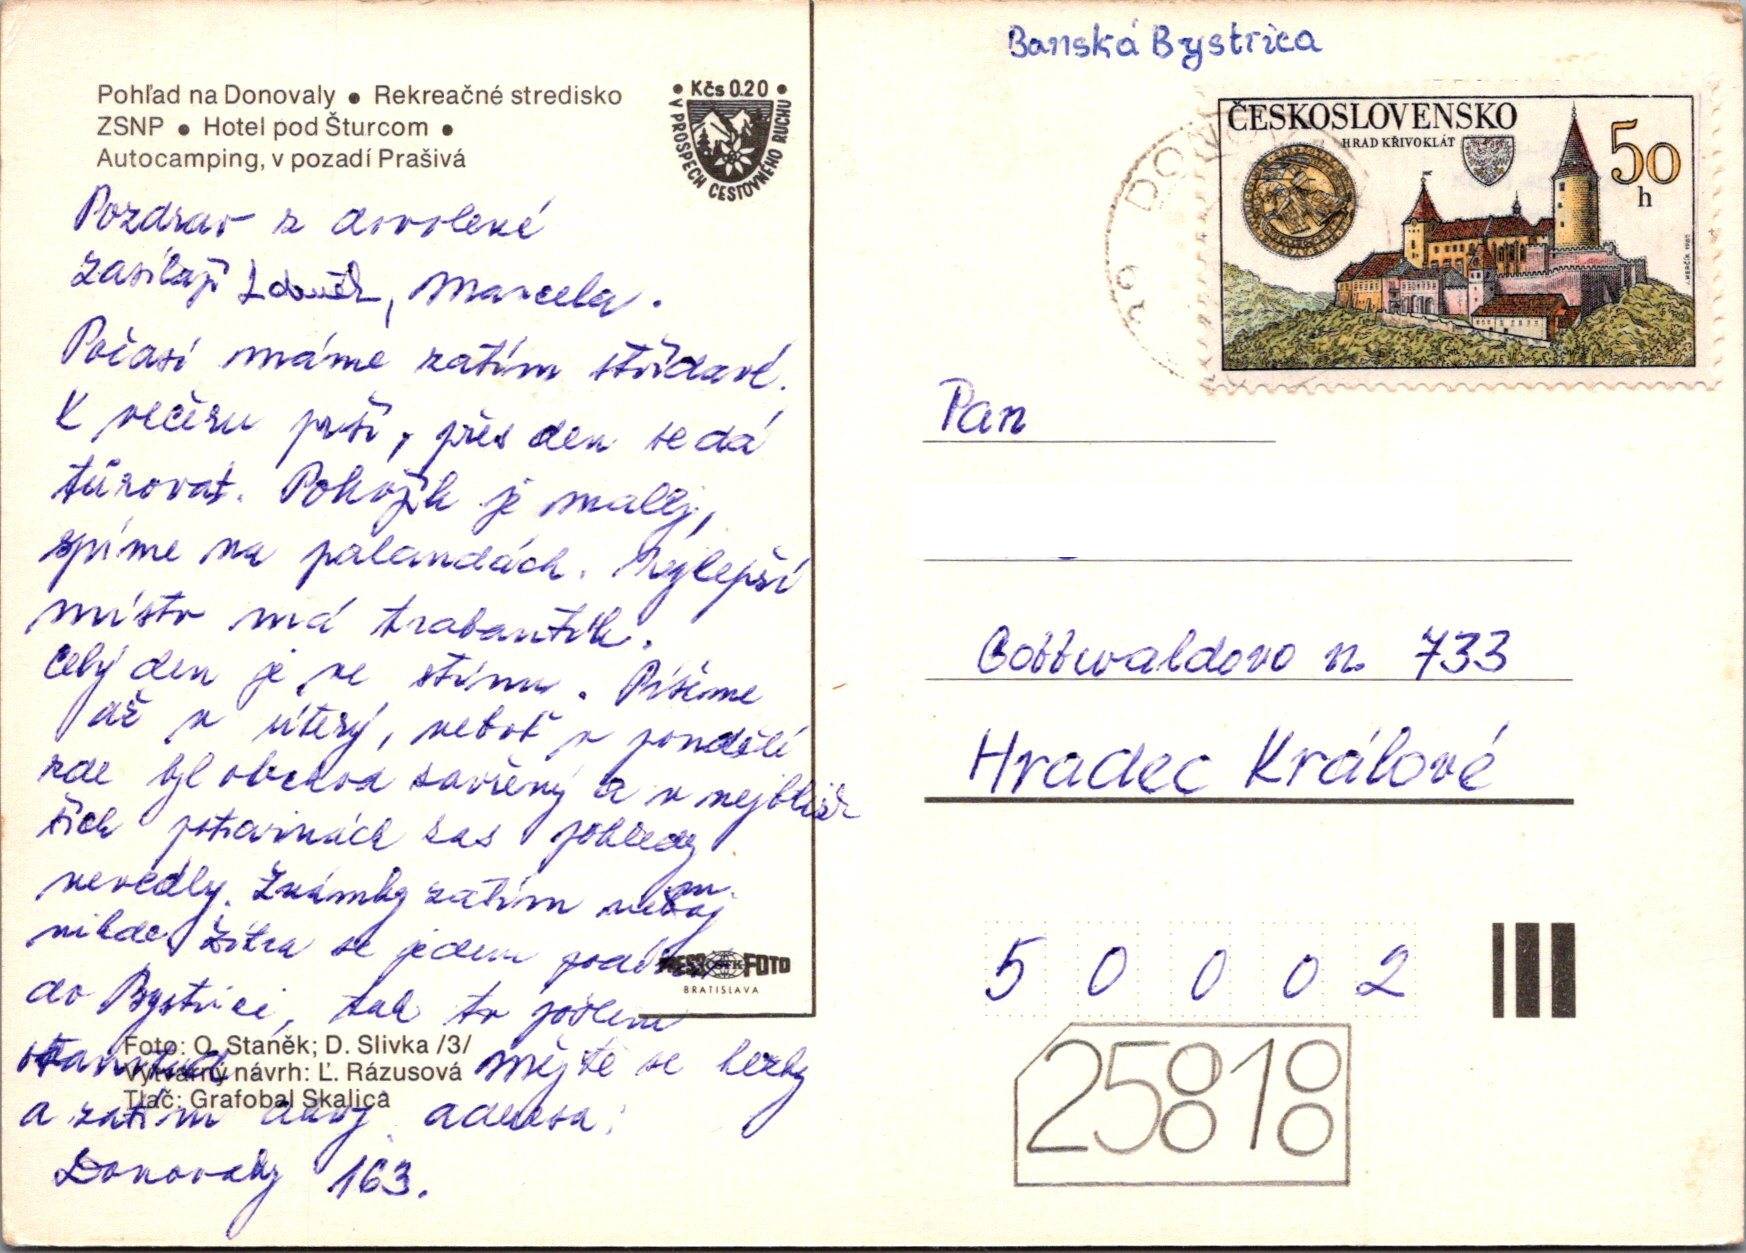 Pohľad na Donovaly • Rekreačné stredisko
ZSNP • Hotel pod Šturcom •
Autocamping, v pozadí Prašivá
• Kčs 0.20 •
V PROSPECH CESTOVNÉHO RUCHU
Pozdrav z dovolené
zasílají Zdeněk, Marcela.
Počasí máme zatím střídavé.
K večeru prší, přes den se dá
túrovat. Pokojík je malý,
spíme na palandách. Nejlepší
místo má trabantík.
Celý den je ve stínu. Píšeme
až v úterý, neboť v pondělí
zde byl obchod zavřený a v nejbliž
ších potravinách zas pohledy
nevedly. Známky zatím nemaj
nikde. Zítra se jedem podívat
do Bystrici, tak to pošlem
Mějte se hezky
a zatím ahoj. adresa:
Donovaly 163.
PRESSFOTO
BRATISLAVA
Foto: O. Staněk; D. Slivka /3/
Výtvarný návrh: Ľ. Rázusová
Tlač: Grafobal Skalica
Banská Bystrica
ČESKOSLOVENSKO
HRAD KŘIVOKLÁT
50
h
Pan
Gottwaldovo n. 733
Hradec Králové
5 0 0 0 2
25818